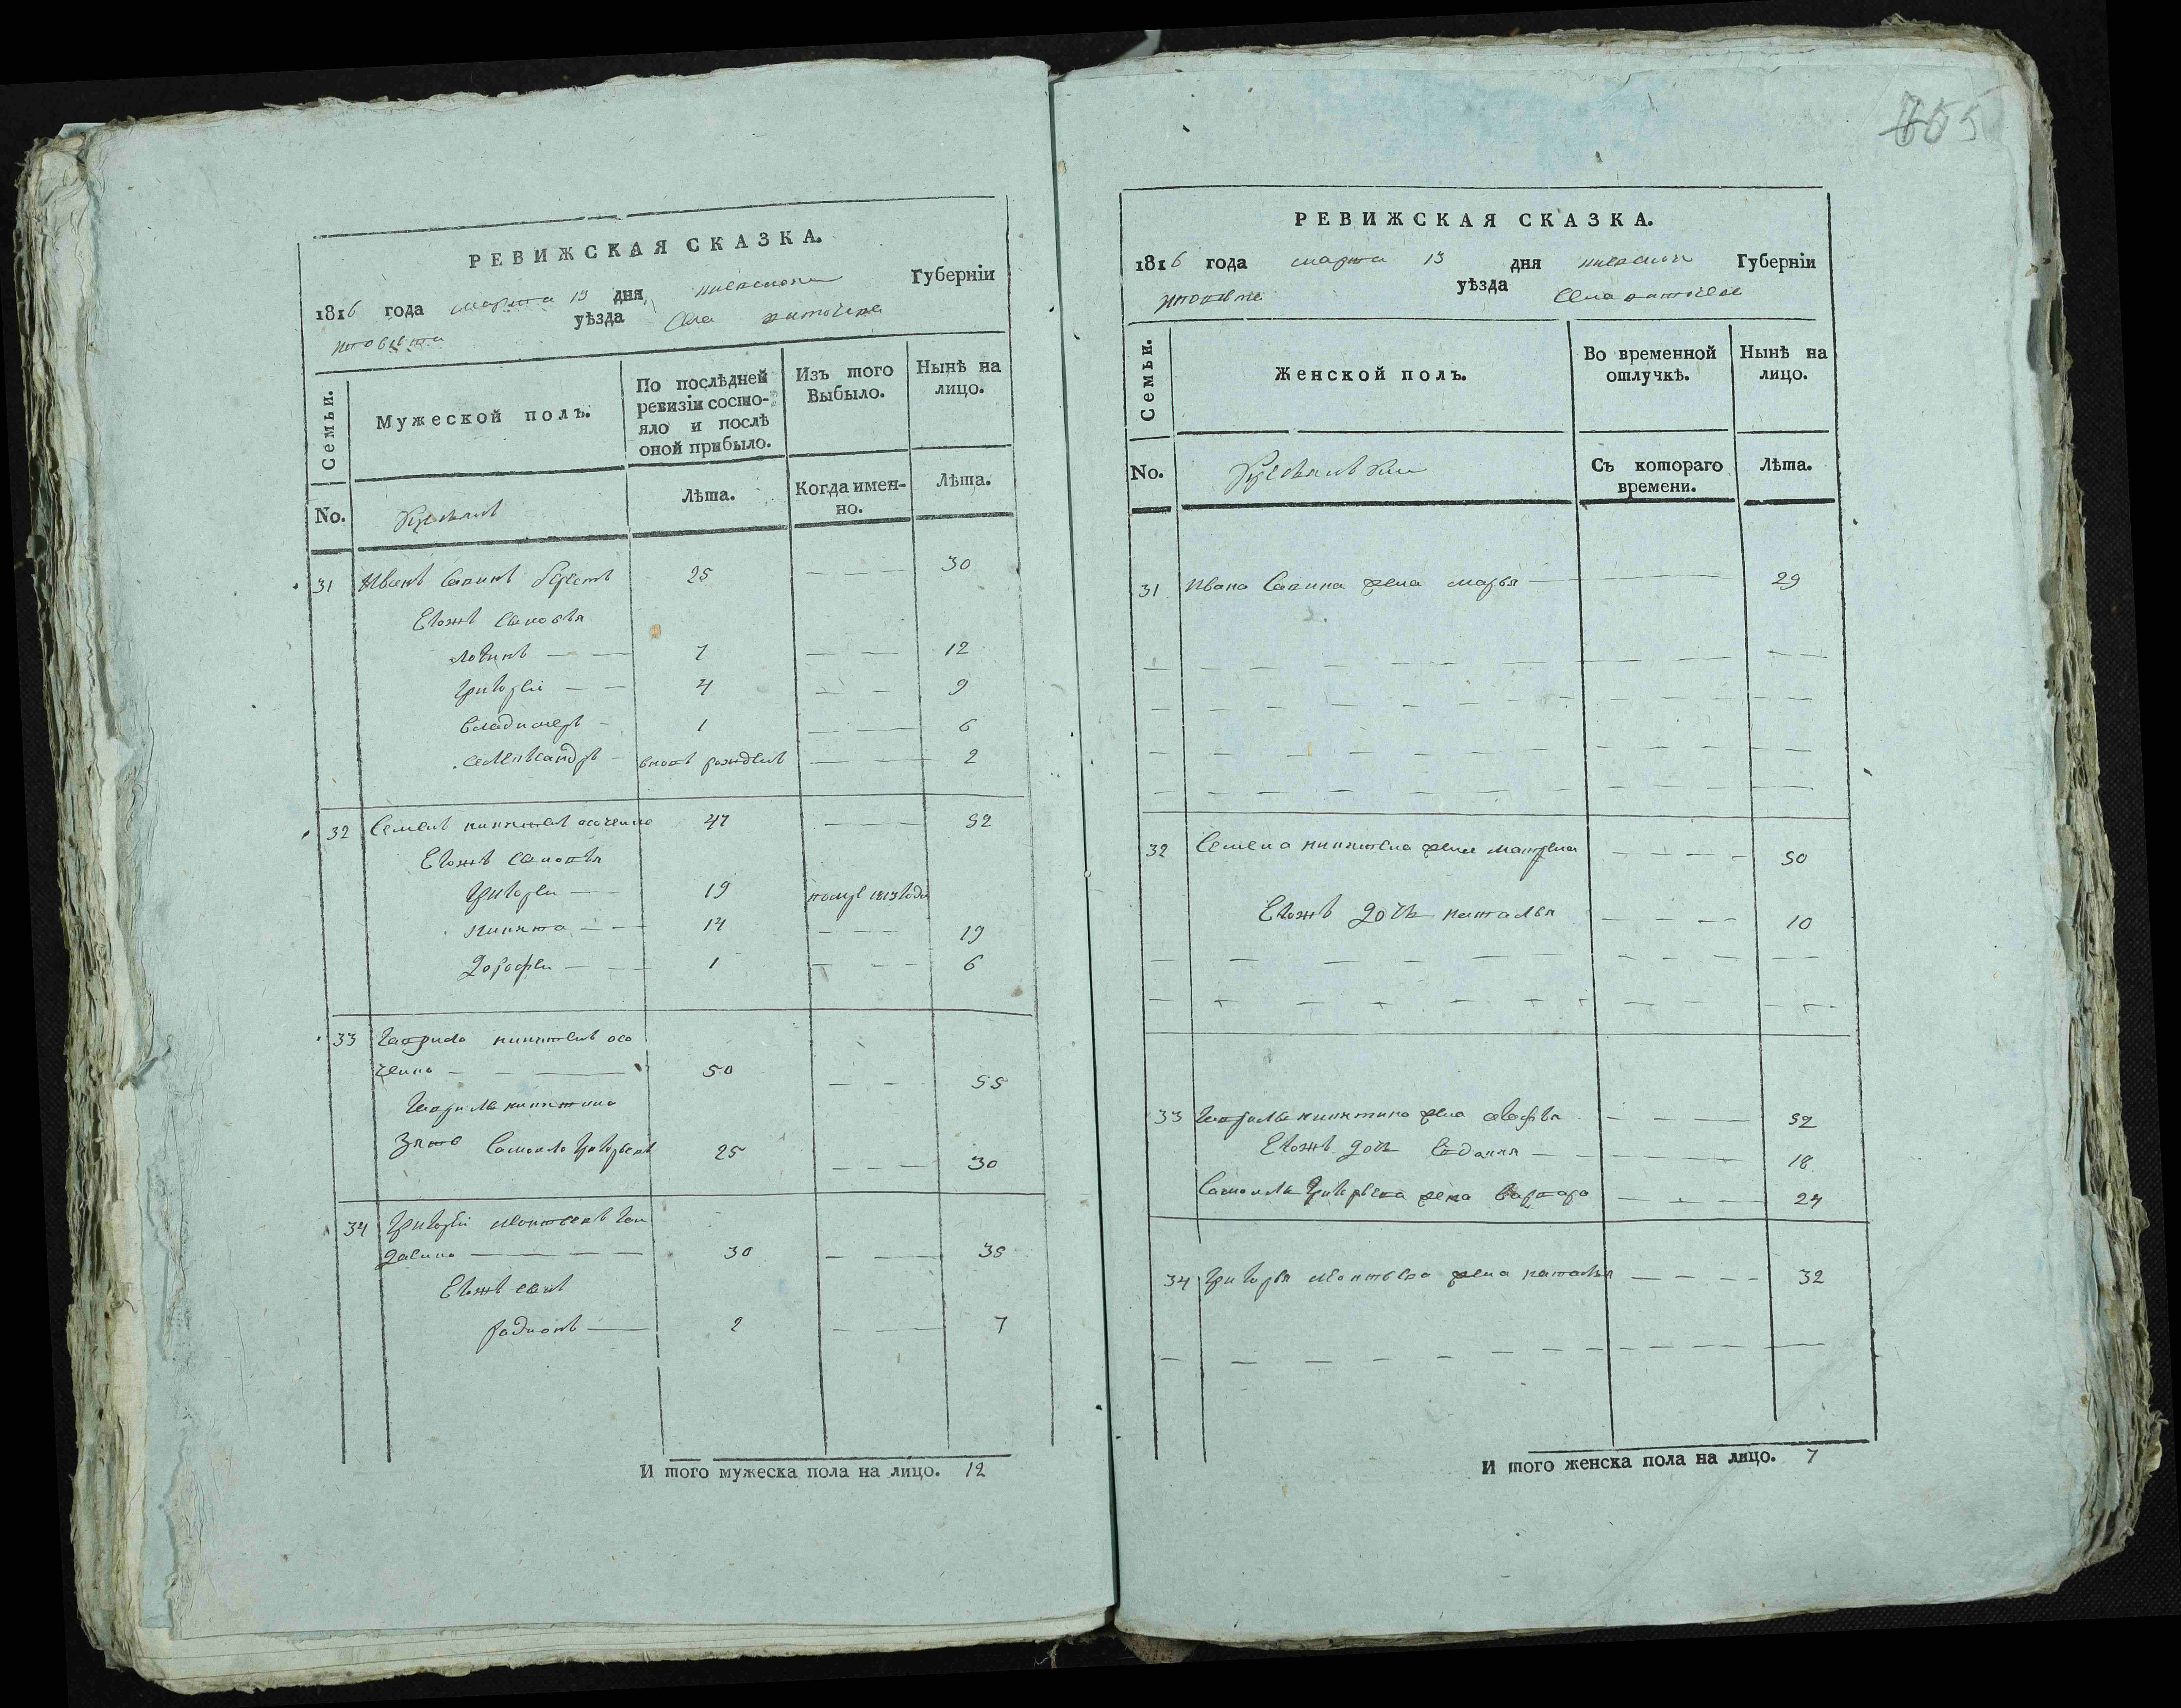 РЕВИЖСКАЯ СКАЗКА.
1816 года марта 13 дня Губерніи
уѣзда Села
Семьи.
Мужеской полъ.
По послѣдней ревизіи состо-
яло и послѣ
оной прибыло.
Изъ того
Выбыло.
Нынѣ на
лицо.
No.
Лѣта.
Когда имен-
но.
Лѣта.
31 Иванъ Савинъ 25 — — 30
Егожъ Сыновья
Логинъ — — 7 — — 12
Григорей — — 4 — — 9
Владимеръ — 1 — — 6
Александръ — вновь рожденъ — — 2
32 Семенъ Никитинъ 47 — 52
Егожъ Сыновья
Григорей — — 19 помре 1813 года
Никита — — 14 — — — 19
Дорофей — — 1 — — — 6
33 Гаврило Никитинъ
— — — 50 — — 55
Гаврилы Никитина
Зять Самойло Григорьевъ 25 — — — 30
34 Григорей Леонтьевъ
— — — 30 — — 35
Егожъ сынъ
Радионъ — 2 — — 7
И того мужеска пола на лицо. 12
РЕВИЖСКАЯ СКАЗКА.
1816 года марта 13 дня Губерніи
уѣзда Села
Семьи.
Женской полъ.
Во временной
отлучкѣ.
Нынѣ на
лицо.
No.
Съ котораго
времени.
Лѣта.
31 Ивана Савина жена марья — — 29
32 Семена Никитина жена Матрена — — — — 50
Егожъ Дочь наталья — — — — 10
33 Гаврилы Никитина жена — — — 52
Егожъ Дочь — — — 18
Самойлы Григорьева жена Варвара — — — 24
34 Григорья Леонтьева жена наталья — — — — 32
И того женска пола на лицо. 7